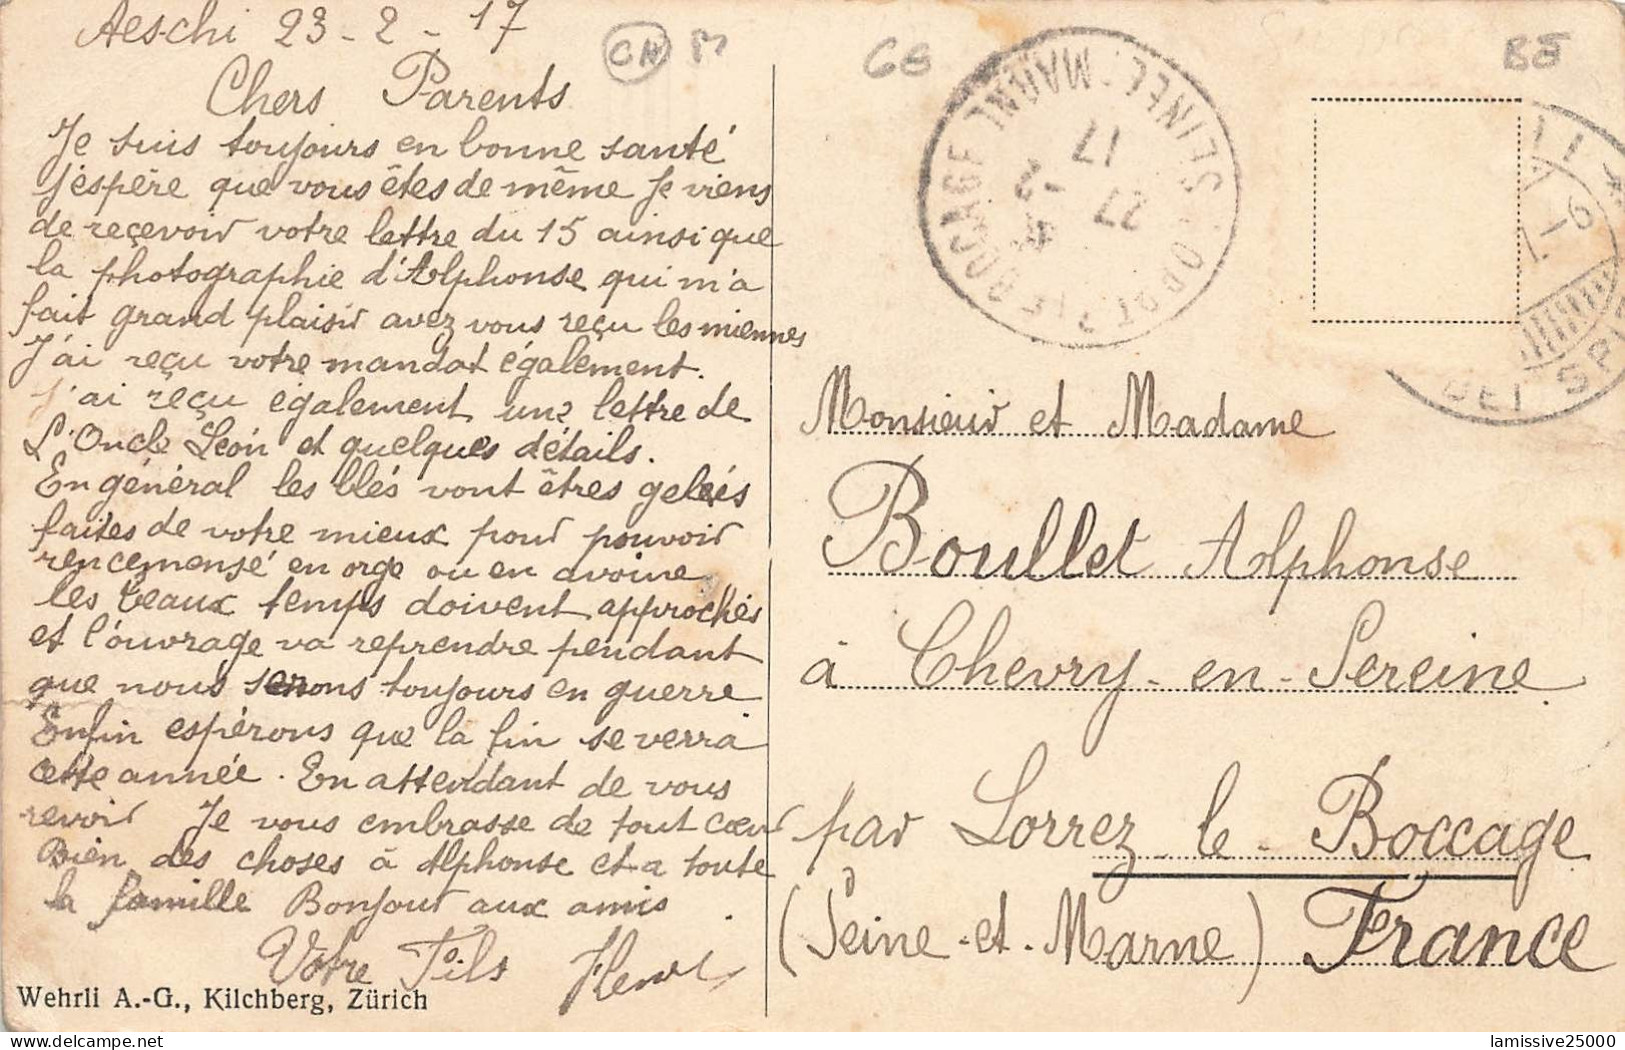 Aeschi 23-2-17
Chers Parents
Je suis toujours en bonne santé
j'éspère que vous êtes de même Je viens
de reçevoir votre lettre du 15 ainsi que
la photographie d'Alphonse qui m'a
fait grand plaisir avez vous reçu les miennes
J'ai reçu votre mandat également.
J'ai reçu également une lettre de
L'Oncle Léon et quelques détails.
En général les blés vont êtres gelés
faites de votre mieux pour pouvoir
rencemensé en orge ou en avoine
les beaux temps doivent approchés
et l'ouvrage va reprendre pendant
que nous serons toujours en guerre
Enfin espérons que la fin se verra
cette année. En attendant de vous
revoir Je vous embrasse de tout cœur
Bien des choses à Alphonse et a toute
la famille Bonjour aux amis.
Votre Fils Henri
Wehrli A.-G., Kilchberg, Zürich
CH M
GE
BE
LORREZ-LE-BOCAGE
SNE-ET-MARNE
27 -2
17
BEI SPI
Monsieur et Madame
Boullet Alphonse
à Chevry-en-Sereine
par Lorrez-le-Boccage
(Seine-et-Marne) France
lamissive25000